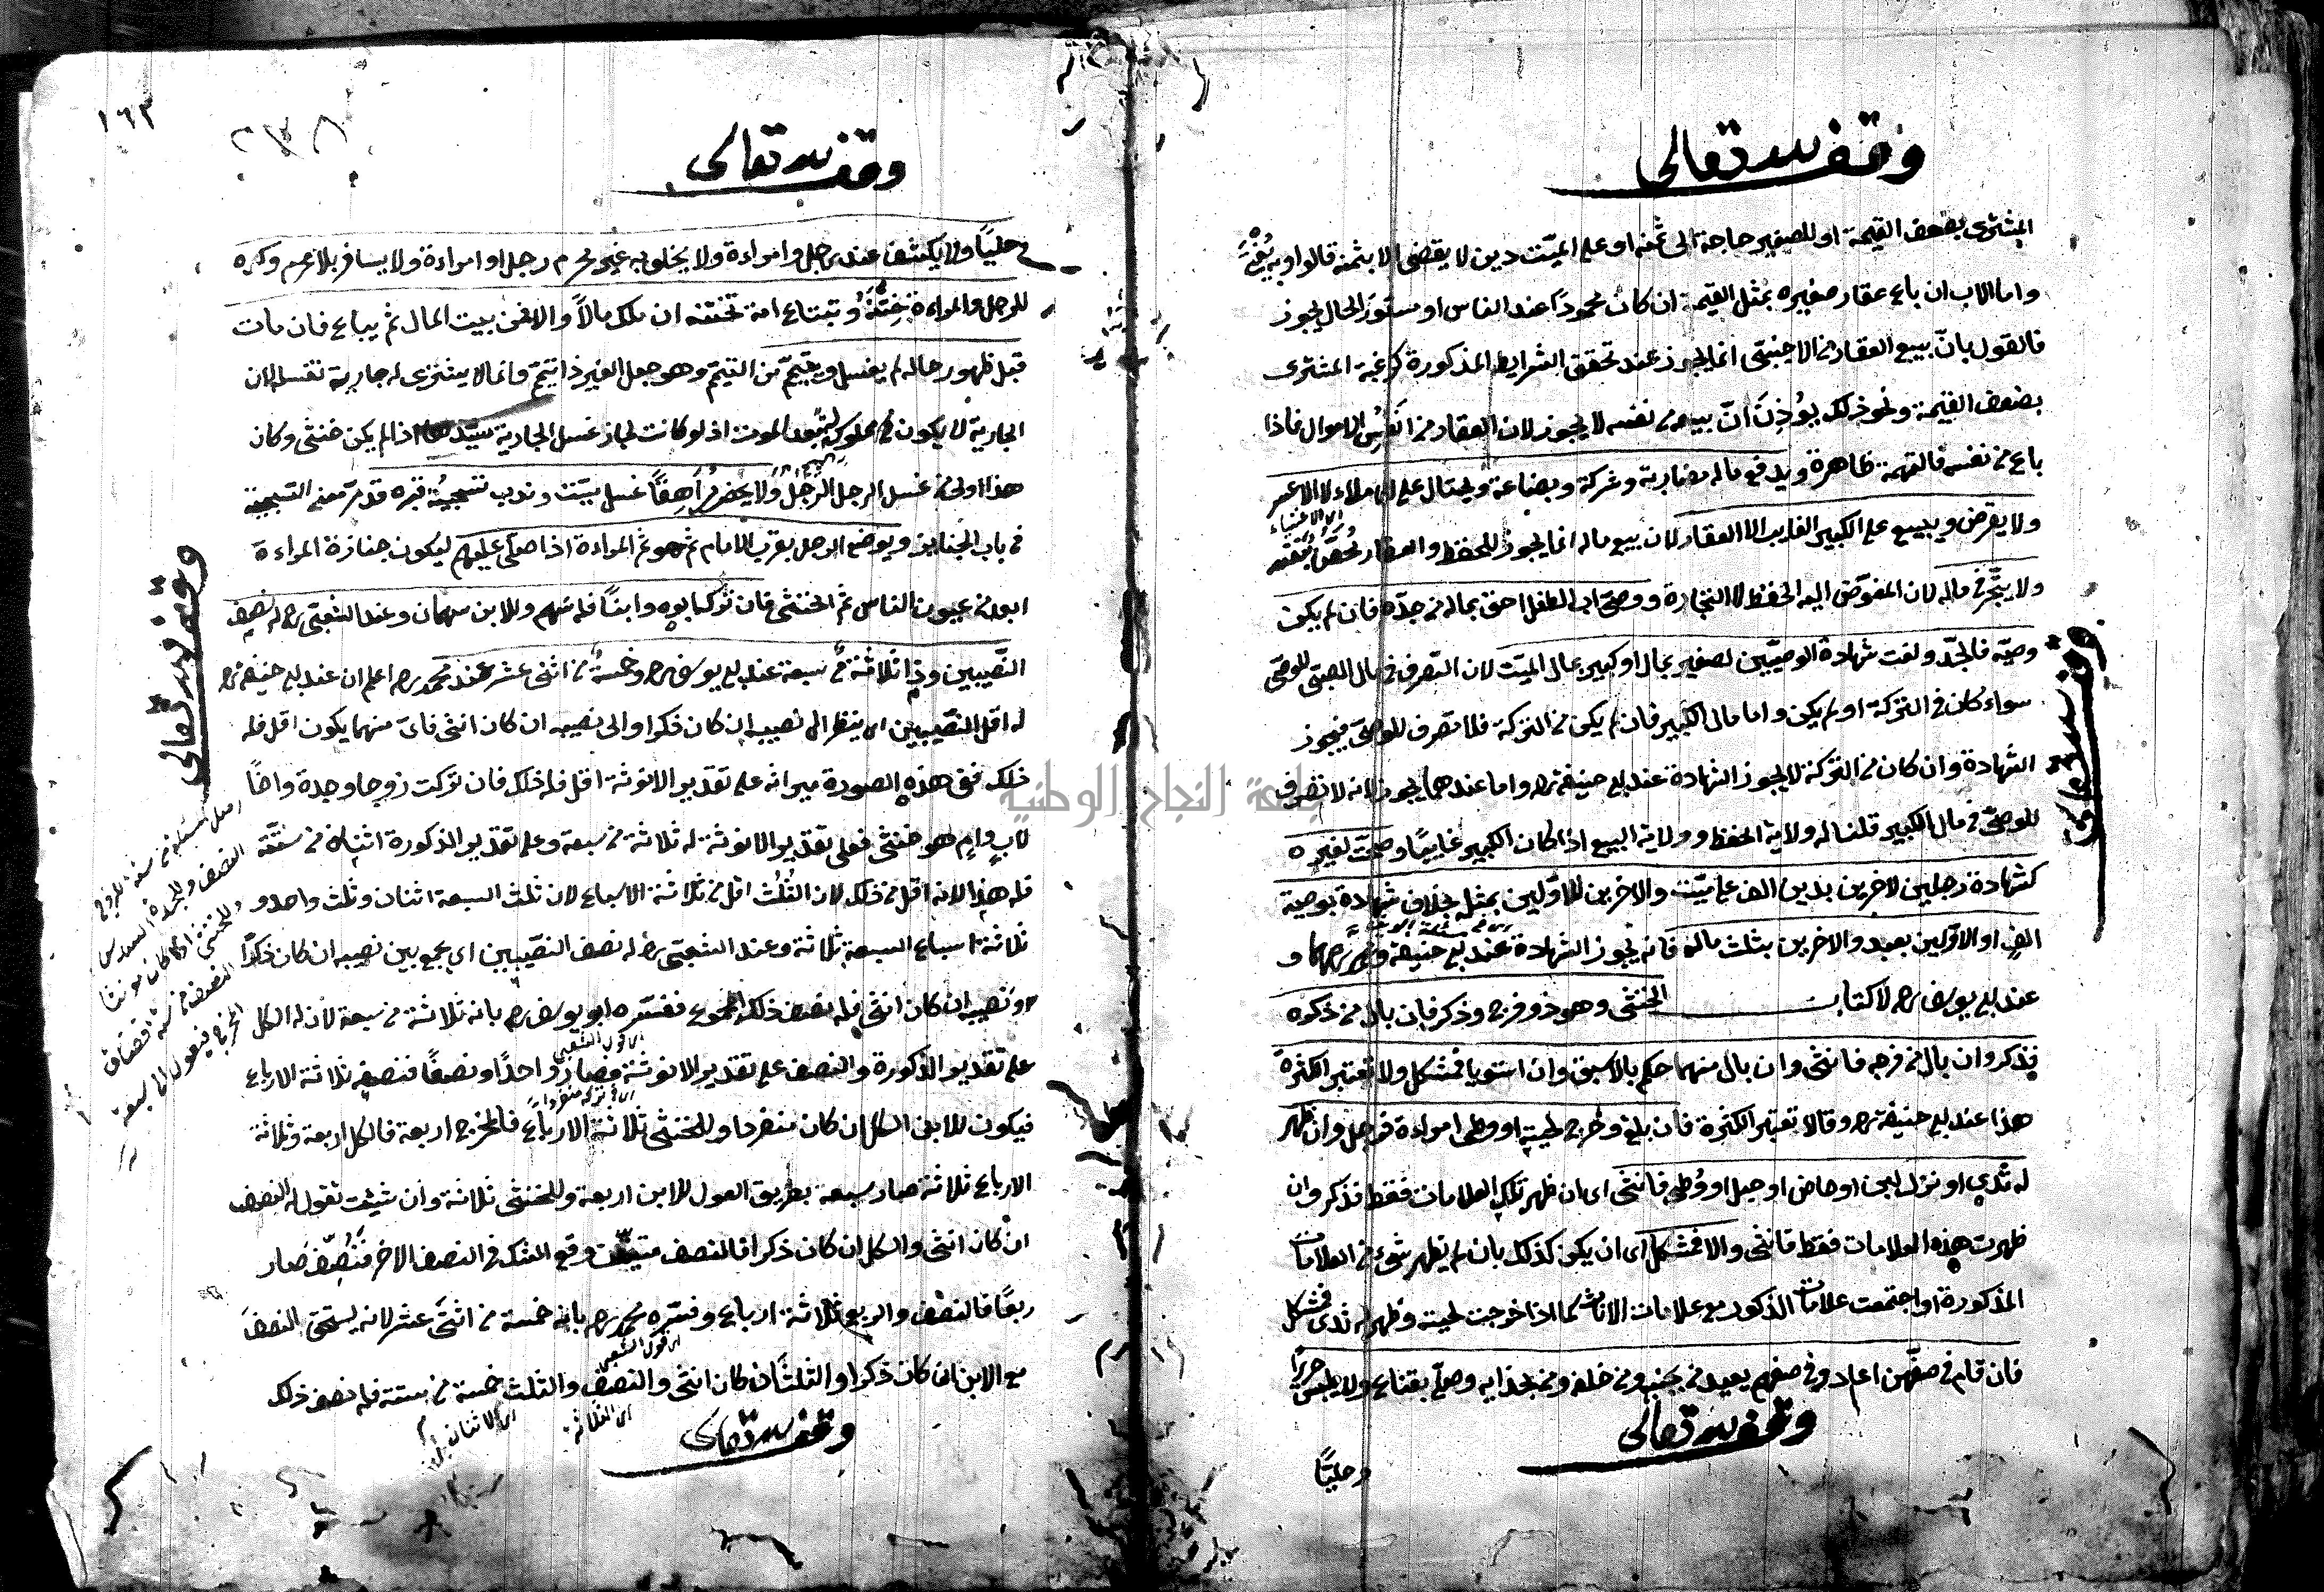 وقف لله تعالى
المشتري بضعف القيمة او للصغير حاجة الى ثمنه او على الميّت دين لا يقضى الا بثمنه قالوا وبه يفتى
واما الاب ان باع عقار صغيره بمثل القيمة ان كان محمودًا عند الناس او مستور الحال يجوز
فالقول بانّ بيع العقار من الاجنبيّ انما يجوز عند تحقق الشرايط المذكورة كرغبة المشتري
بضعف القيمة ونحو ذلك يُوذِن انّ بيعه من نفسه لا يجوز لان العقار من انفسِ الاموال فاذا
باع من نفسه فالتهمة ظاهرة ويدفع ماله مضاربة وشركة وبضاعة ويحتال على الاملاء لا الاعسر
ولا يقرض ويبيع على الكبير الغايب الا العقار لان بيع ماله انما يجوز للحفظ والعقار محصّن بنفسه
ولا يتّجر في ماله لان المفوّض اليه الحفظ لا التجارة ووصيّ اب الطفل احق بماله من جدّه فان لم يكن
وصيّه فالجدّ ولغت شهادة الوصيّين لصغير بمال او كبير بمال الميّت لان التصرف في مال الصبيّ للوصيّ
سواء كان في التركة او لم يكن واما مال الكبير فان لم يكن من التركة فلا تصرف للوصيّ فيجوز
الشهادة وان كان من التركة لا يجوز الشهادة عند ابي حنيفة رح واما عندهما يجوز لانه لا تصرف
للوصيّ في مال الكبير قلنا له ولاية الحفظ وولاية البيع اذا كان الكبير غايبًا وصحّت لغيره
كشهادة رجلين لاخرين بدين الف على ميّت والاخرين للاوّلين بمثله بخلاف شهادة بوصية
الفٍ او الاوّلين بعبد والاخرين بثلث ماله فانه يجوز الشهادة عند ابي حنيفة و رحمهما و
عند ابي يوسف رح لا كتاب الخنثى وهو ذو فرج وذكر فان بال من ذكره
فذكر وان بال من فرجه فانثى وان بال منهما حكم بالاسبق وان استويا فمشكل ولا تعتبر الكثرة
هذا عند ابي حنيفة رح وقالا تعتبر الكثرة فان بلغ وخرج لحيته او وطى امراءة فرجل وان ظهر
له ثديٍ او نزل لبن او حاض او حبل او وُطى فانثى اى ان ظهر تلك العلامات فقط فذكر وان
ظهرت هذه العلامات فقط فانثى والا فمشكل اى ان يكون كذلك بان لم يظهر شيء من العلامات
المذكورة او اجتمعت علامات الذكور مع علامات الاناث كما اذا خرجت لحية وظهر له ثدى فمشكل
فان قام في صفّهن اعاد وفي صفهم يعيد من بجنبه ومن خلفه ومن بحذايه وصلّى بقناع ولا يلبس حريرًا
وقف لله تعالى
وحليًّا
وقف لله تعالى
١٦٢
٢٣٨
وقف لله تعالى
وحليًّا ولا يكشف عند رجل وامراءة ولا يخلو به غير محرم رجل او امراءة ولا يسافر بلا محرم وكره
للرجل والمراءة خَتنُهُ وتبتاع امة تختنه ان ملك مالًا والا فمن بيت المال ثم يباع فان مات
قبل ظهور حاله لم يغسل ويتيمّم من التيمّم وهو جعل الغير ذا تيمّم وانما لا يشترى له جارية تغسله لان
الجارية لا يكون مملوكة بعد الموت اذ لو كانت لجاز غسل الجارية سيّدها اذا لم يكن خنثى وكان
هذا اولى من غسل الرجل الرجل ولا يحضر مراهقًا غسل ميّت وندب تسجية قبره قد مرّ معنى التسجية
في باب الجنايز ويوضع الرجل بقرب الامام ثم هو ثم المراءة اذا صلّى عليهم ليكون جنازة المراءة
ابعد من عيون الناس ثم الخنثى فان تركه ابوه وابنًا فله سهم وللابن سهمان وعند الشعبيّ رح له نصف
النصيبين وذا ثلاثة من سبعة عند ابي يوسف رح وخمسة من اثنى عشر عند محمد رح اعلم ان عند ابي حنيفة رح
له اقل النصيبين اى ينظر الى نصيبه ان كان ذكرا والى نصيبه ان كان انثى فاىّ منهما يكون اقل فله
ذلك ففى هذه الصورة ميراثه على تقدير الانوثة اقل فله ذلك فان تركت زوجا وجدة واخا
لابٍ وامٍ هو خنثى فعلى تقدير الانوثة له ثلاثة من سبعة وعلى تقدير الذكورة اثنان من ستّة
فله هذا لانه اقل من ذلك لان الثُلُث اقل من ثلاثة الاسباع لان ثلث السبعة اثنان وثلث واحد و
ثلاثة اسباع السبعة ثلاثة وعند الشعبيّ رح له نصف النصيبين اى يجمع بين نصيبه ان كان ذكرًا
ونصيبه ان كان انثى فله نصف ذلك المجموع ففسّره ابو يوسف رح بانه ثلاثة من سبعة لان له الكل
على تقدير الذكورة والنصف على تقدير الانوثة فصار واحدًا ونصفًا فنصفه ثلاثة الارباع
فيكون للابن الكل ان كان منفردا وللخنثى ثلاثة الارباع فالمخرج اربعة فالكل اربعة وثلاثة
الارباع ثلاثة صار سبعة بطريق العول للابن اربعة وللخنثى ثلاثة وان شئت تقول له النصف
ان كان انثى والكل ان كان ذكرا فالنصف متيقّن وقع الشك في النصف الاخر فنُصّف صار
ربعًا فالنصف والربع ثلاثة ارباع وفسّره محمد رح بانه خمسة من اثنى عشر لانه يستحق النصف
مع الابن ان كان ذكرا والثلث ان كان انثى والنصف والثلث خمسة من ستة فله نصف ذلك
وقف لله تعالى
وقف لله تعالى
جامعة النجاح الوطنية